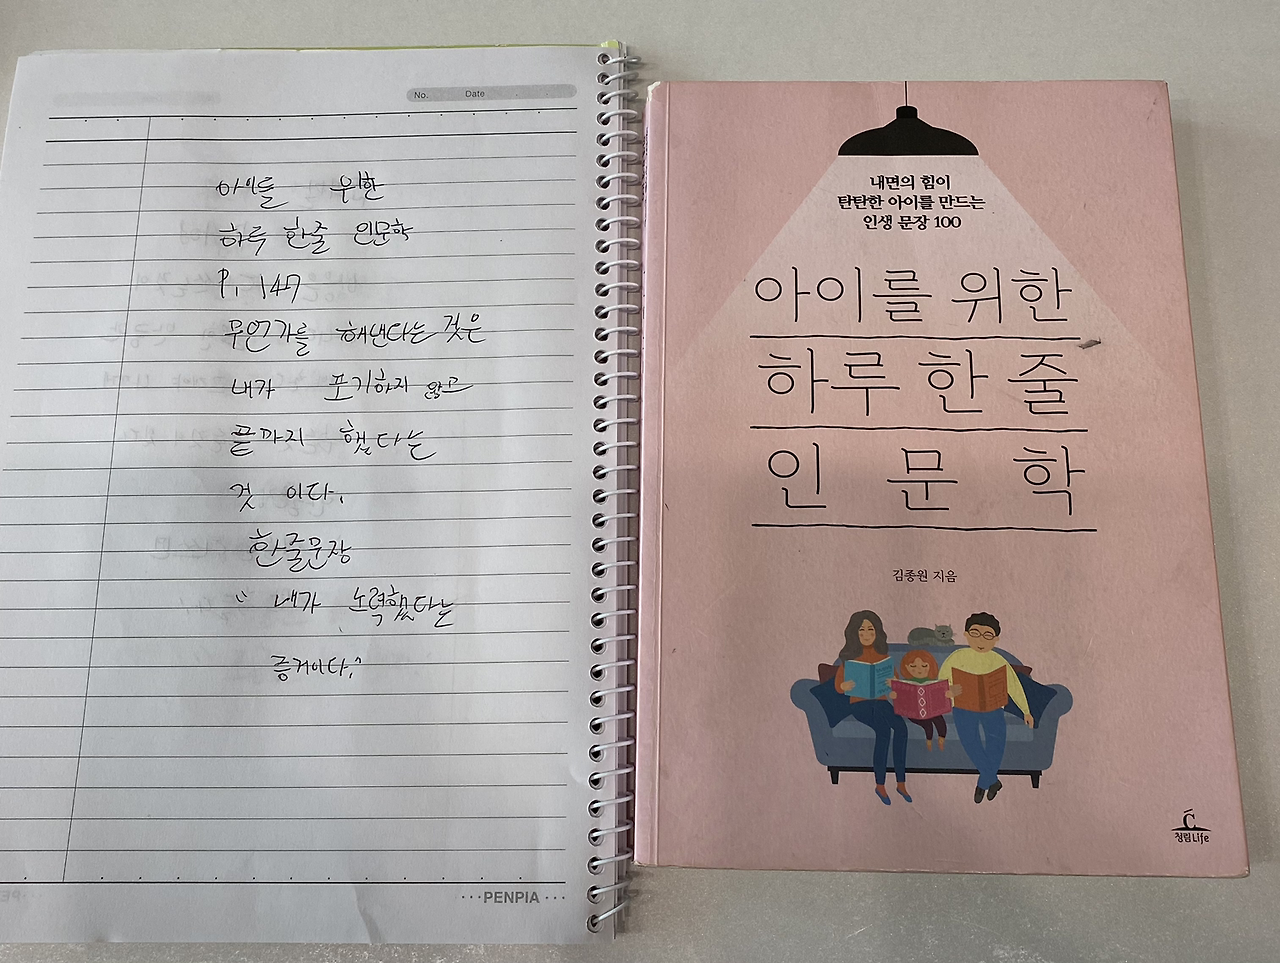 No. Date
아이를 위한
하루 한줄 인문학
P. 147
무언가를 해낸다는 것은
내가 포기하지 않고
끝까지 했다는
것 이다.
한줄문장
" 내가 노력했다는
증거이다."
PENPIA
내면의 힘이
탄탄한 아이를 만드는
인생 문장 100
아이를 위한
하루 한 줄
인 문 학
김종원 지음
청림Life